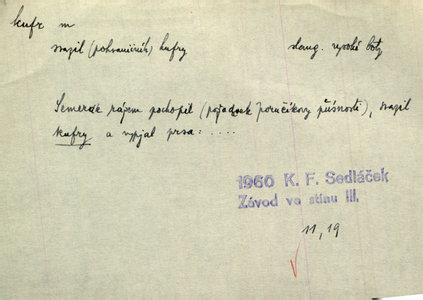 kufr m
srazil (pohraničník) kufry slang. vysoké boty
Semerák rázem pochopil (pořadník poručíkovy přísnosti), srazil
kufry a vypjal prsa: ....
1960 K. F. Sedláček
Závod ve stínu III.
11, 19